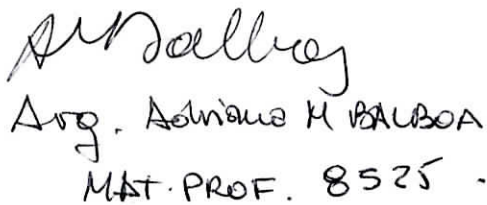 AMBalboa
Arq. Adriana M BALBOA
MAT. PROF. 8525.